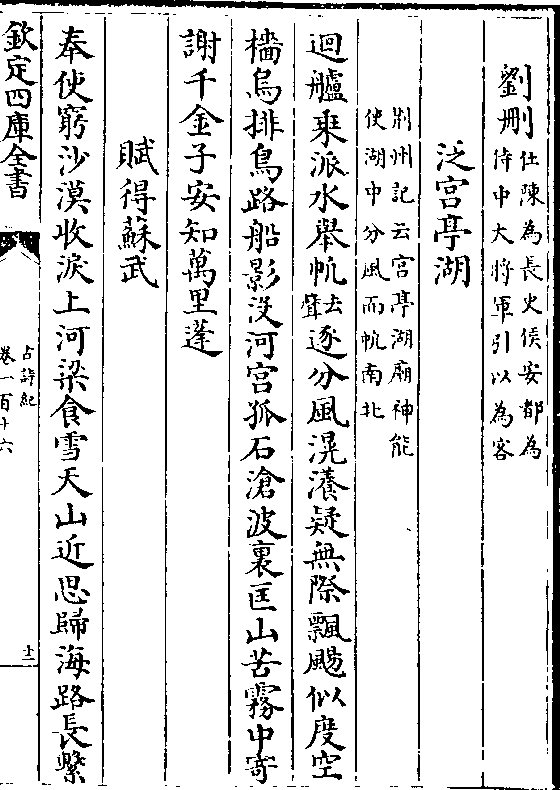 劉刪
仕陳為長史侯安都為
侍中大將軍引以為客
泛宫亭湖
荆州記云宫亭湖廟神能
使湖中分風而帆南北
迴艫乗派水舉帆去聲逐分風滉瀁疑無際飄颺似度空
檣烏排鳥路船影没河宫孤石滄波裏匡山苦霧中寄
謝千金子安知萬里蓬
賦得蘇武
奉使窮沙漠收淚上河梁食雪天山近思歸海路長繫
欽定四庫全書
古詩紀
卷一百十六
十二